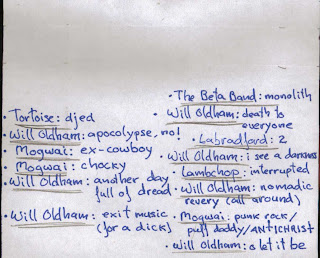 • Tortoise: djed
• Will Oldham: apocolypse, no!
• Mogwai: ex-cowboy
• Mogwai: chocky
• Will Oldham: another day
full of dread
• Will Oldham: exit music
(for a dick)
• The Beta Band: monolith
• Will Oldham: death to
everyone
• Labradford: 2
• Will Oldham: i see a darkness
• Lambchop: interrupted
• Will Oldham: nomadic
revery (all around)
• Mogwai: punk rock/
puff daddy/ANTICHRIST
• Will Oldham: o let it be